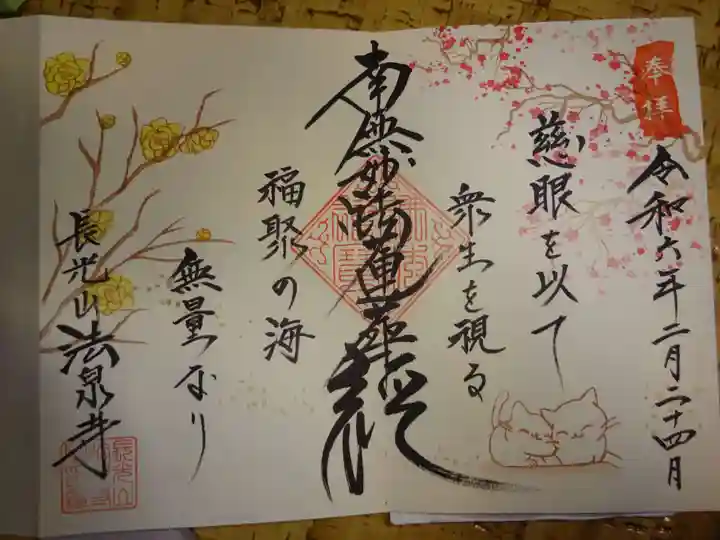 奉拝
令和六年二月二十四月
慈眼を以て
衆生を視る
南無妙法蓮華経
福聚の海
無量なり
長光山法泉寺